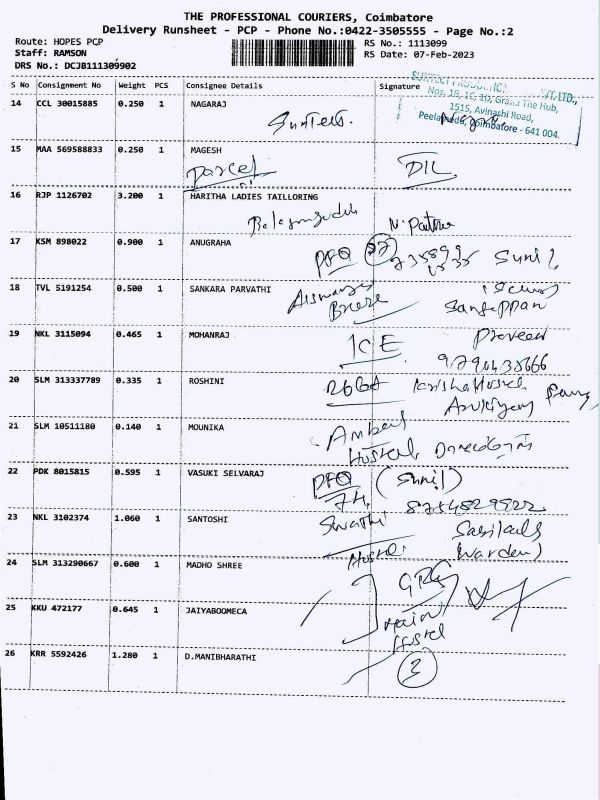 THE PROFESSIONAL COURIERS, Coimbatore
Delivery Runsheet - PCP - Phone No.:0422-3505555 - Page No.:2
Route: HOPES PCP
RS No.: 1113099
Staff: RAMSON
RS Date: 07-Feb-2023
DRS No.: DCJB111309902
S No Consignment No Weight PCS Consignee Details Signature
Nos. 1B, 1C, 1D, Grand The Hub,
1515, Avinashi Road,
Peelamedu, Coimbatore - 641 004.
14 CCL 30015885 0.250 1 NAGARAJ
SunTects.
15 MAA 569588833 0.250 1 MAGESH
Parcel DIL
16 RJP 1126702 3.200 1 HARITHA LADIES TAILLORING
17 KSM 898022 0.900 1 ANUGRAHA
PFQ Sunil
18 TVL 5191254 0.500 1 SANKARA PARVATHI
Breeze
19 NKL 3115094 0.465 1 MOHANRAJ
ICE Praveen
20 SLM 313337789 0.335 1 ROSHINI
21 SLM 10511180 0.140 1 MOUNIKA
Hostel
22 PDK 8015815 0.595 1 VASUKI SELVARAJ
PFQ (Sunil)
74, 8754829522
23 NKL 3102374 1.060 1 SANTOSHI
Swathi
Hostel (Warden)
24 SLM 313290667 0.600 1 MADHO SHREE
GRG
25 KKU 472177 0.645 1 JAIYABOOMECA
main
Hostel
26 KRR 5592426 1.280 1 D.MANIBHARATHI
3